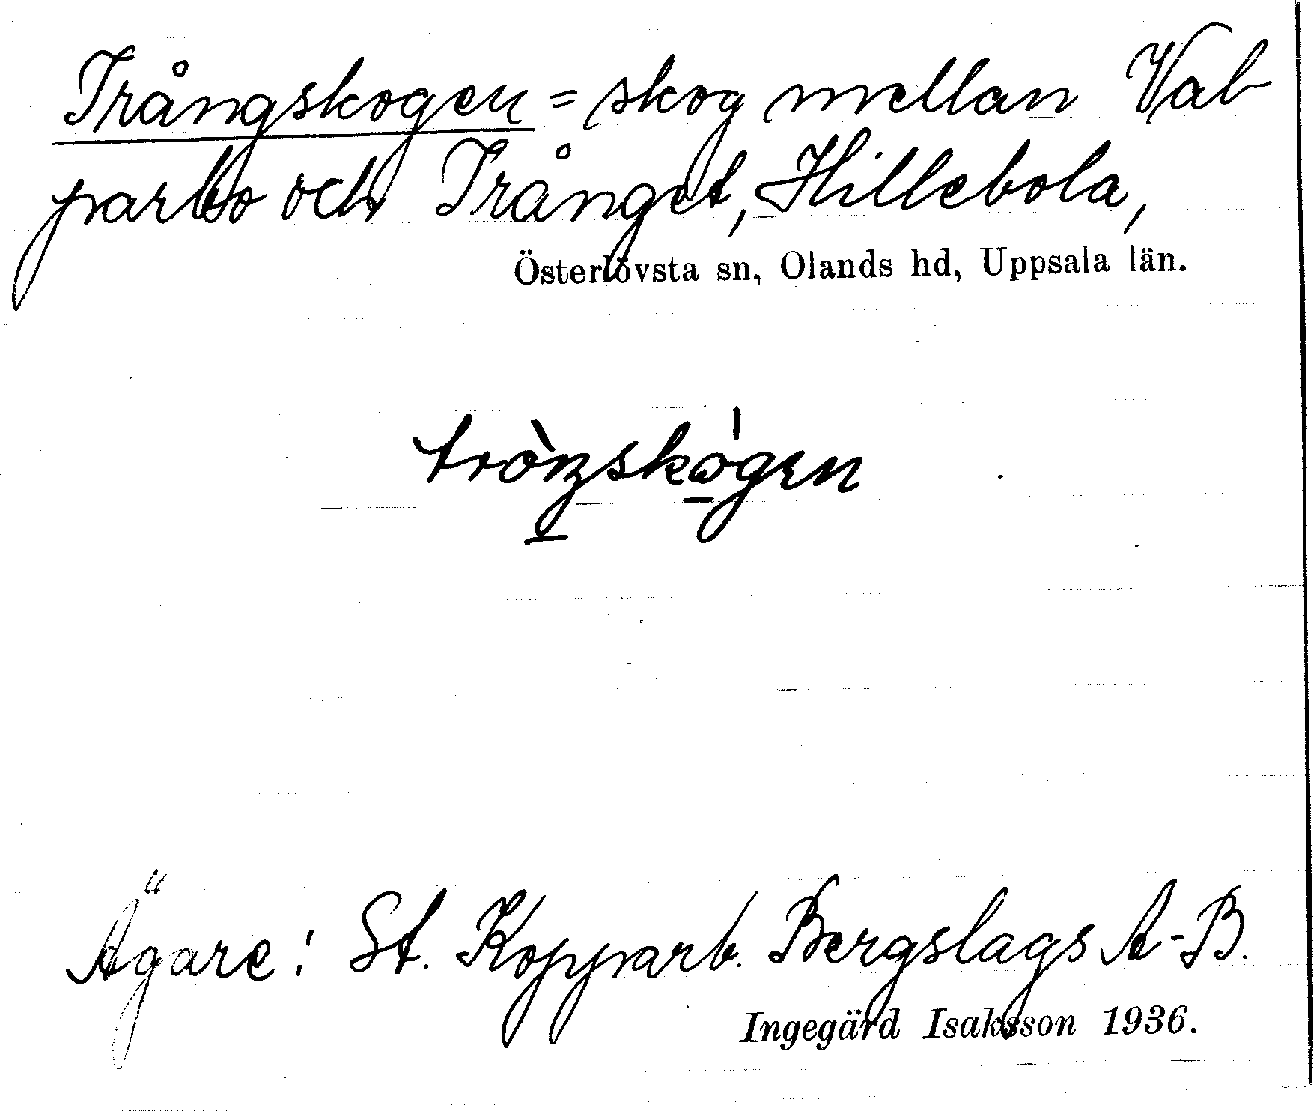 Trångskogen = skog mellan Val-
parbo och Trånget, Hillebola,
Österlövsta sn, Olands hd, Uppsala län.
tròŋskógen
Ägare: St. Kopparb. Bergslags A-B.
Ingegärd Isaksson 1936.